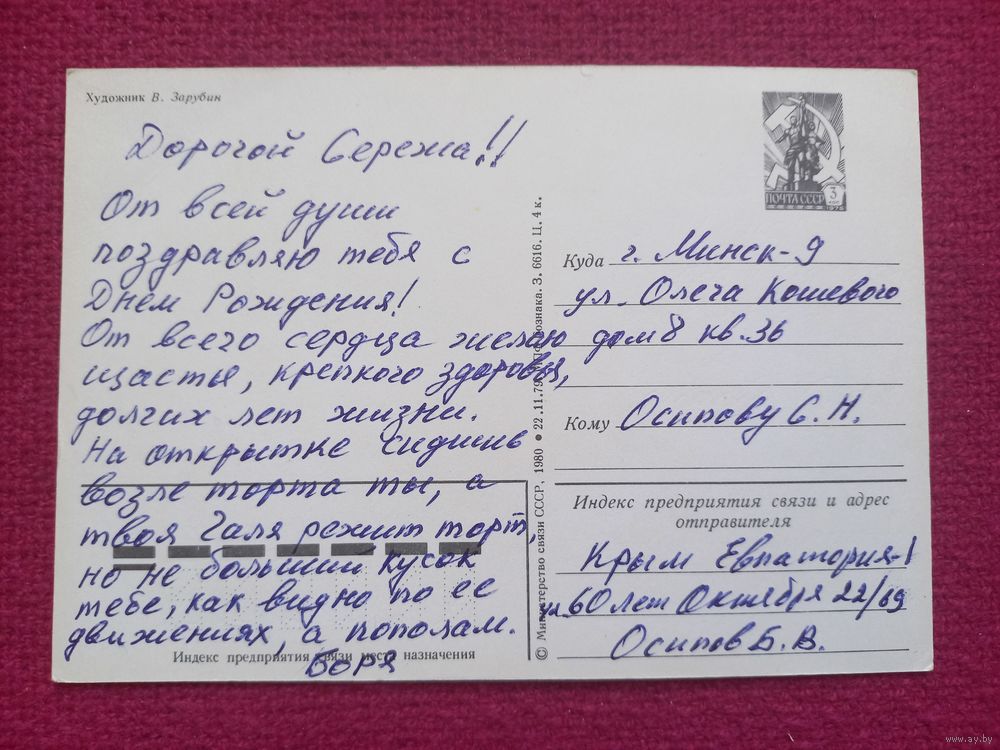 Художник В. Зарубин
Дорогой Сережа!!
От всей души
поздравляю тебя с
Днем Рождения!
От всего сердца желаю
щастья, крепкого здоровья,
долгих лет жизни.
На открытке сидишь
возле торта ты, а
твоя Галя режит торт,
но не большии кусок
тебе, как видно по ее
движениях, а пополам.
Боря
Индекс предприятия связи места назначения
© Министерство связи СССР, 1980 • 22.11.79. Гознака. З. 6616. Ц. 4 к.
ПОЧТА СССР
3
КОП
1976
Куда г. Минск-9
ул. Олега Кошевого
дом 8 кв. 36
Кому Осипову С. Н.
Индекс предприятия связи и адрес
отправителя
Крым Евпатория-1
ул 60 лет Октября 22/69
Осипов Б. В.
www.ay.by